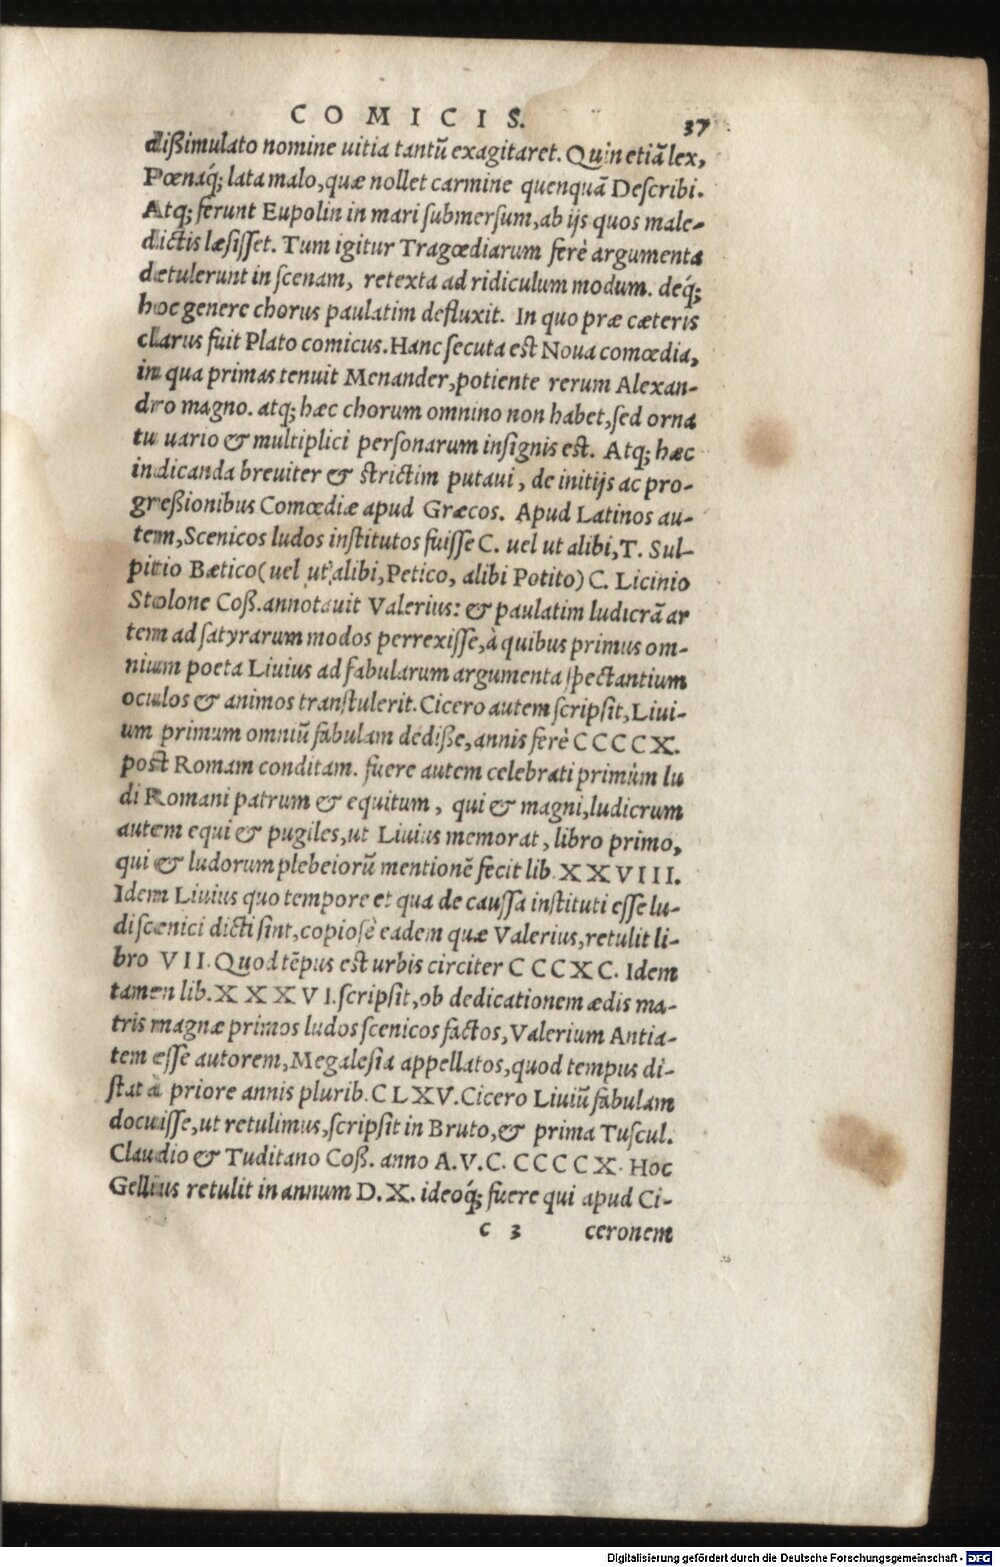 COMICIS. 37
dißimulato nomine uitia tantū exagitaret. Quin etiā lex,
Pœnaq́; lata malo, quæ nollet carmine quenquā Describi.
Atq; ferunt Eupolin in mari submersum, ab ijs quos male-
dictis læsisset. Tum igitur Tragœdiarum ferè argumenta
detulerunt in scenam, retexta ad ridiculum modum. deq́;
hoc genere chorus paulatim defluxit. In quo præ cæteris
clarus fuit Plato comicus. Hanc secuta est Noua comœdia,
in qua primas tenuit Menander, potiente rerum Alexan-
dro magno. atq; hæc chorum omnino non habet, sed orna
tu uario & multiplici personarum insignis est. Atq; hæc
indicanda breuiter & strictim putaui, de initijs ac pro-
greßionibus Comœdiæ apud Græcos. Apud Latinos au-
tem, Scenicos ludos institutos fuisse C. uel ut alibi, T. Sul-
pitio Bætico (uel ut alibi, Petico, alibi Potito) C. Licinio
Stolone Coß. annotauit Valerius: & paulatim ludicrā ar
tem ad satyrarum modos perrexisse, à quibus primus om-
nium poeta Liuius ad fabularum argumenta spectantium
oculos & animos transtulerit. Cicero autem scripsit, Liui-
um primum omniū fabulam dediße, annis ferè CCCCX.
post Romam conditam. fuere autem celebrati primùm lu
di Romani patrum & equitum, qui & magni, ludicrum
autem equi & pugiles, ut Liuius memorat, libro primo,
qui & ludorum plebeiorū mentionē fecit lib. XXVIII.
Idem Liuius quo tempore et qua de caussa instituti esse lu-
di scænici dicti sint, copiosè eadem quæ Valerius, retulit li-
bro VII. Quod tēpus est urbis circiter CCCXC. Idem
tamen lib. XXXVI. scripsit, ob dedicationem ædis ma-
tris magnæ primos ludos scenicos factos, Valerium Antia-
tem esse autorem, Megalesia appellatos, quod tempus di-
stat à priore annis plurib. CLXV. Cicero Liuiū fabulam
docuisse, ut retulimus, scripsit in Bruto, & prima Tuscul.
Claudio & Tuditano Coß. anno A.V.C. CCCCX. Hoc
Gellius retulit in annum D.X. ideoq́; fuere qui apud Ci-
c 3 ceronem
Digitalisierung gefördert durch die Deutsche Forschungsgemeinschaft - DFG